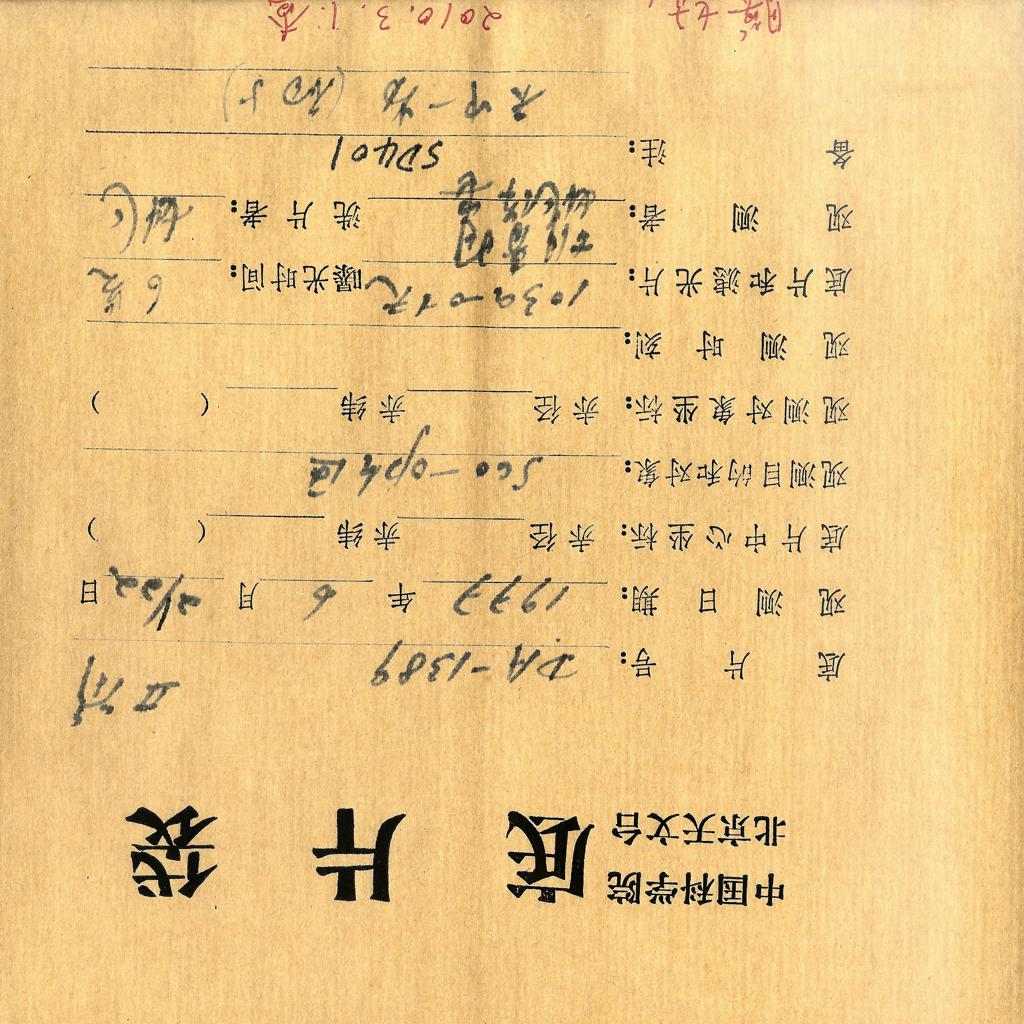 中国科学院
北京天文台
底片袋
底片号: DA-1389
观测日期: 1977年 6月 21/22日
底片中心坐标: 赤径 赤纬 ( )
观测目的和对象: Sco-oph 区
观测对象坐标: 赤径 赤纬 ( )
观测时刻:
底片和滤光片: 103a-O+无 曝光时间: 6
观测者: 洗片者:
备注: SD401
2010.3.1.查